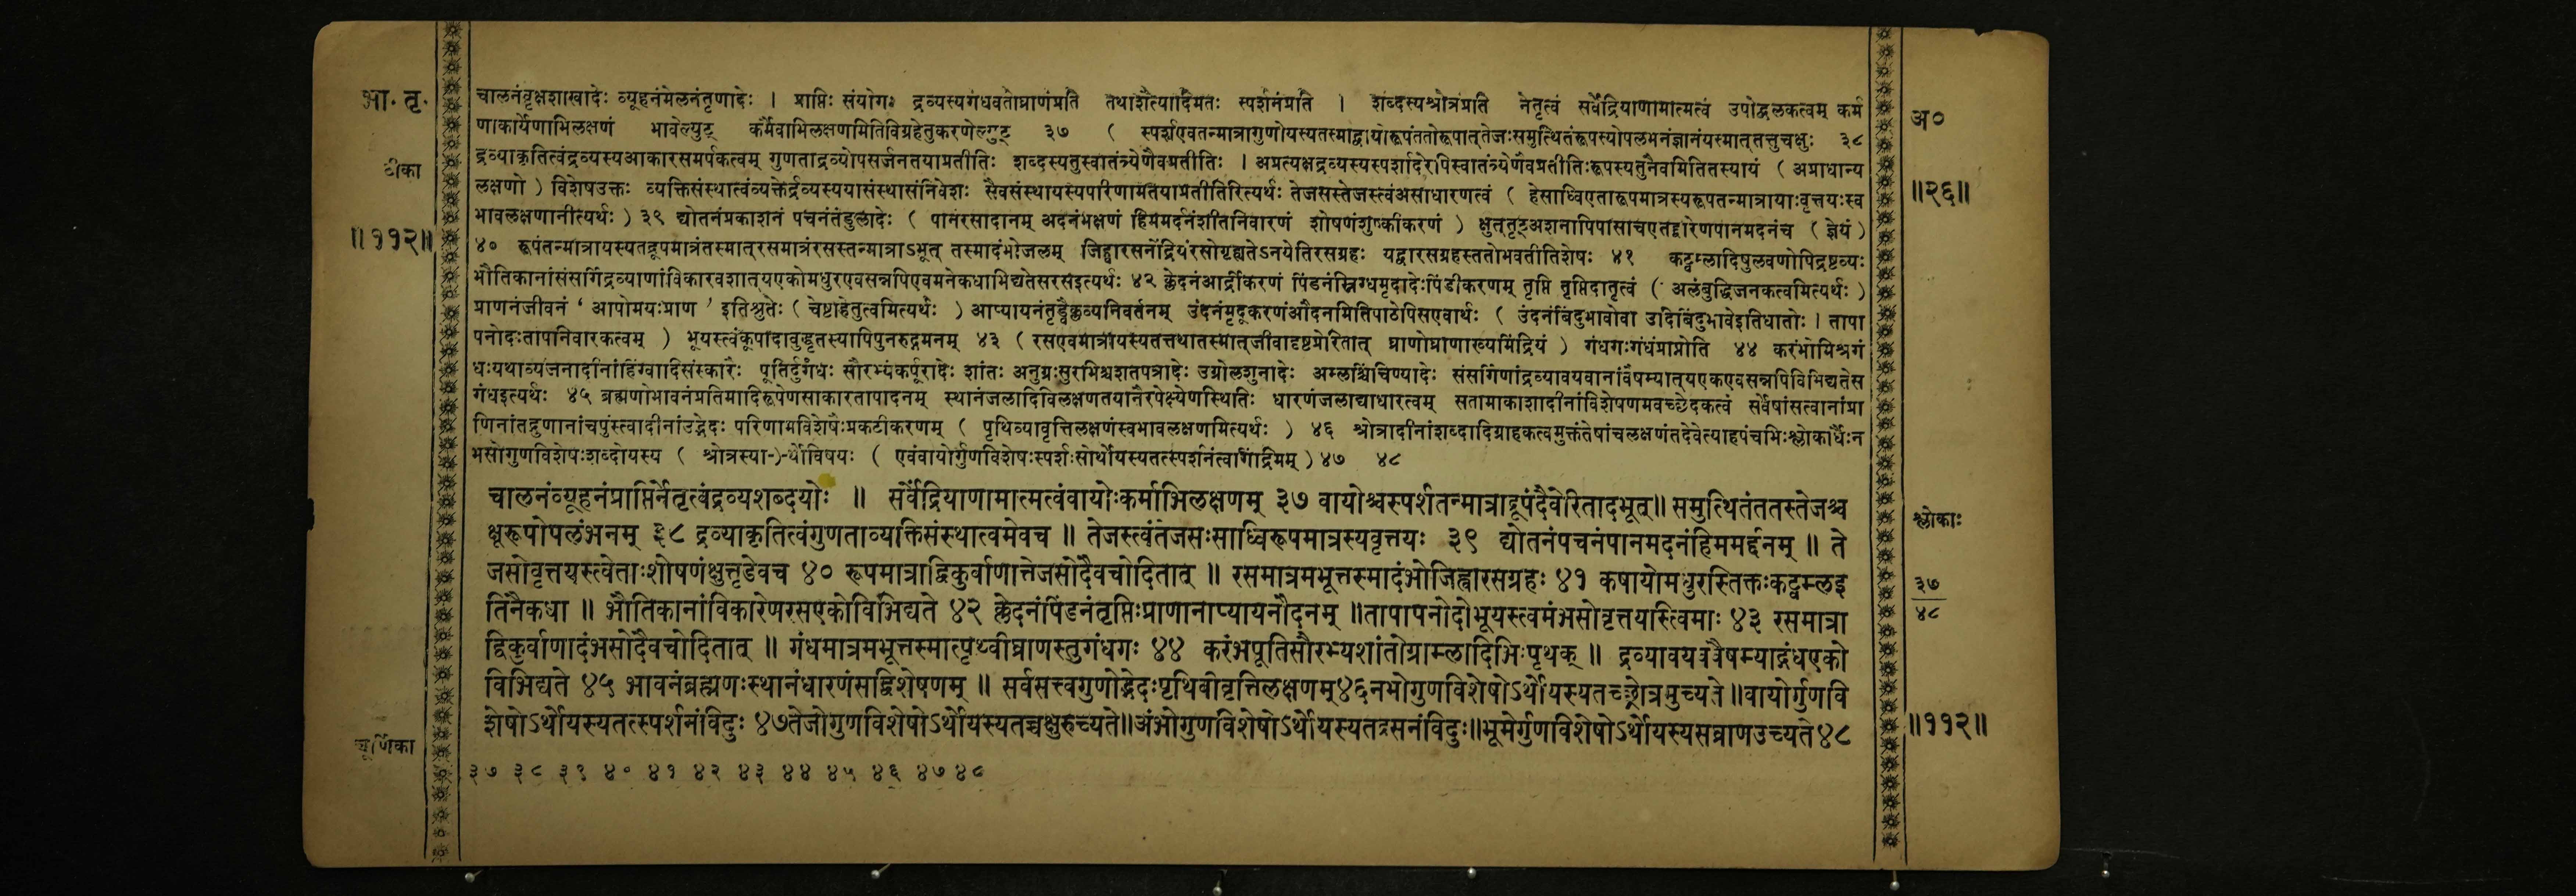 भा. तृ.
टीका
॥११२॥
चूर्णिका
चालनंवृक्षशाखादेः व्यूहनंमेलनंतृणादेः । प्राप्तिः संयोगः द्रव्यस्यगंधवतोघ्राणंप्रति तथाशैत्यादिमतः स्पर्शनंप्रति । शब्दस्यश्रोत्रंप्रति नेतृत्वं सर्वेंद्रियाणामात्मत्वं उपोद्बलकत्वम् कर्म
णाकार्येणाभिलक्षणं भावेल्युट् कर्मैवाभिलक्षणमितिविग्रहेतुकरणेल्युट् ३७ ( स्पर्शएवतन्मात्रागुणोयस्यतस्माद्वायोरूपंततोरूपात्तेजःसमुत्थितंरूपस्योपलभनंज्ञानंयस्मात्तत्तुचक्षुः ३८
द्रव्याकृतित्वंद्रव्यस्यआकारसमर्पकत्वम् गुणताद्रव्योपसर्जनतयाप्रतीतिः शब्दस्यतुस्वातंत्र्येणैवप्रतीतिः । अप्रत्यक्षद्रव्यस्यस्पर्शादेरपिस्वातंत्र्येणैवप्रतीतिःरूपस्यतुनैवमितितस्यायं ( अप्राधान्य
लक्षणो ) विशेषउक्तः व्यक्तिसंस्थात्वंव्यक्तेर्द्रव्यस्ययासंस्थासंनिवेशः सैवसंस्थायस्यपरिणामतयाप्रतीतिरित्यर्थः तेजसस्तेजस्त्वंअसाधारणत्वं ( हेसाध्विएतारूपमात्रस्यरूपतन्मात्रायाःवृत्तयःस्व
भावलक्षणानीत्यर्थः ) ३९ द्योतनंप्रकाशनं पचनंतंडुलादेः ( पानंरसादानम् अदनंभक्षणं हिममर्दनंशीतनिवारणं शोषणंशुष्कीकरणं ) क्षुत्तृट्अशनापिपासाचएतद्द्वारेणपानमदनंच ( ज्ञेयं )
४० रूपंतन्मात्रायस्यतद्रूपमात्रंतस्मात्रसमात्रंरसस्तन्मात्राऽभूत् तस्मादंभोजलम् जिह्वारसनेंद्रियंरसोगृह्यतेऽनयेतिरसग्रहः यद्वारसग्रहस्ततोभवतीतिशेषः ४१ कट्वम्लादिषुलवणोपिद्रष्टव्यः
भौतिकानांसंसर्गिद्रव्याणांविकारवशात्यएकोमधुरएवसन्नपिएवमनेकधाभिद्यतेसरसइत्यर्थः ४२ क्लेदनंआर्द्रीकरणं पिंडनंस्निग्धमृदादेःपिंडीकरणम् तृप्ति तृप्तिदातृत्वं ( अलंबुद्धिजनकत्वमित्यर्थः )
प्राणनंजीवनं ‘ आपोमयःप्राण ’ इतिश्रुतेः ( चेष्टाहेतुत्वमित्यर्थः ) आप्यायनंतृड्वैक्लव्यनिवर्तनम् उंदनंमृदूकरणंऔदनमितिपाठेपिसएवार्थः ( उंदनंबिंदुभावोवा उदिबिंदुभावेइतिधातोः । तापा
पनोदःतापनिवारकत्वम् ) भूयस्त्वंकूपादावुद्धृतस्यापिपुनरुद्गमनम् ४३ ( रसएवमात्रायस्यतत्तथातस्मात्जीवादृष्टप्रेरितात् घ्राणोघ्राणाख्यमिंद्रियं ) गंधगःगंधंप्राप्नोति ४४ करंभोमिश्रगं
धःयथाव्यंजनादीनांहिंग्वादिसंस्कारैः पूतिर्दुर्गंधः सौरभ्यंकर्पूरादेः शांतः अनुग्रःसुरभिश्चशतपत्रादेः उग्रोलशुनादेः अम्लश्चिंचिण्यादेः संसर्गिणांद्रव्यावयवानांवैषम्यात्यएकएवसन्नपिविभिद्यतेस
गंधइत्यर्थः ४५ ब्रह्मणोभावनंप्रतिमादिरूपेणसाकारतापादनम् स्थानंजलादिविलक्षणतयानैरपेक्ष्येणस्थितिः धारणंजलाद्याधारत्वम् सतामाकाशादीनांविशेषणमवच्छेदकत्वं सर्वेषांसत्वानांप्रा
णिनांतद्गुणानांचपुंस्त्वादीनांउद्भेदः परिणामविशेषैःप्रकटीकरणम् ( पृथिव्यावृत्तिलक्षणंस्वभावलक्षणमित्यर्थः ) ४६ श्रोत्रादीनांशब्दादिग्राहकत्वमुक्तंतेषांचलक्षणंतदेवेत्याहपंचभिःश्लोकार्धैःन
भसोगुणविशेषःशब्दोयस्य ( श्रोत्रस्या-)-र्थोविषयः ( एवंवायोर्गुणविशेषःस्पर्शःसोर्थोयस्यतत्स्पर्शनंत्वगिंद्रियम् ) ४७ ४८
चालनंव्यूहनंप्राप्तिर्नेतृत्वंद्रव्यशब्दयोः ॥ सर्वेंद्रियाणामात्मत्वंवायोःकर्माभिलक्षणम् ३७ वायोश्चस्पर्शतन्मात्राद्रूपंदैवेरितादभूत्॥ समुत्थितंततस्तेजश्च
क्षूरूपोपलंभनम् ३८ द्रव्याकृतित्वंगुणताव्यक्तिसंस्थात्वमेवच ॥ तेजस्त्वंतेजसःसाध्विरूपमात्रस्यवृत्तयः ३९ द्योतनंपचनंपानमदनंहिममर्द्दनम् ॥ ते
जसोवृत्तयस्त्वेताःशोषणंक्षुत्तृडेवच ४० रूपमात्राद्विकुर्वाणात्तेजसोदैवचोदितात् ॥ रसमात्रमभूत्तस्मादंभोजिह्वारसग्रहः ४१ कषायोमधुरस्तिक्तःकट्वम्लइ
तिनैकधा ॥ भौतिकानांविकारेणरसएकोविभिद्यते ४२ क्लेदनंपिंडनंतृप्तिःप्राणानाप्यायनौदनम् ॥तापापनोदोभूयस्त्वमंभसोवृत्तयास्त्विमाः ४३ रसमात्रा
द्विकुर्वाणादंभसोदैवचोदितात् ॥ गंधमात्रमभूत्तस्मात्पृथ्वीघ्राणस्तुगंधगः ४४ करंभपूतिसौरभ्यशांतोग्राम्लादिभिःपृथक् ॥ द्रव्यावयववैषम्याद्गंधएको
विभिद्यते ४५ भावनंब्रह्मणःस्थानंधारणंसद्विशेषणम् ॥ सर्वसत्त्वगुणोद्भेदःपृथिवीवृत्तिलक्षणम्४६नभोगुणविशेषोऽर्थोयस्यतच्छ्रोत्रमुच्यते ॥वायोर्गुणवि
शेषोऽर्थोयस्यतत्स्पर्शनंविदुः ४७तेजोगुणविशेषोऽर्थोयस्यतच्चक्षुरुच्यते॥अंभोगुणविशेषोऽर्थोयस्यतद्रसनंविदुः॥भूमेर्गुणविशेषोऽर्थोयस्यसघ्राणउच्यते४८
३७ ३८ ३९ ४० ४१ ४२ ४३ ४४ ४५ ४६ ४७ ४८
अ०
॥२६॥
श्लोकाः
३७
४८
॥११२॥